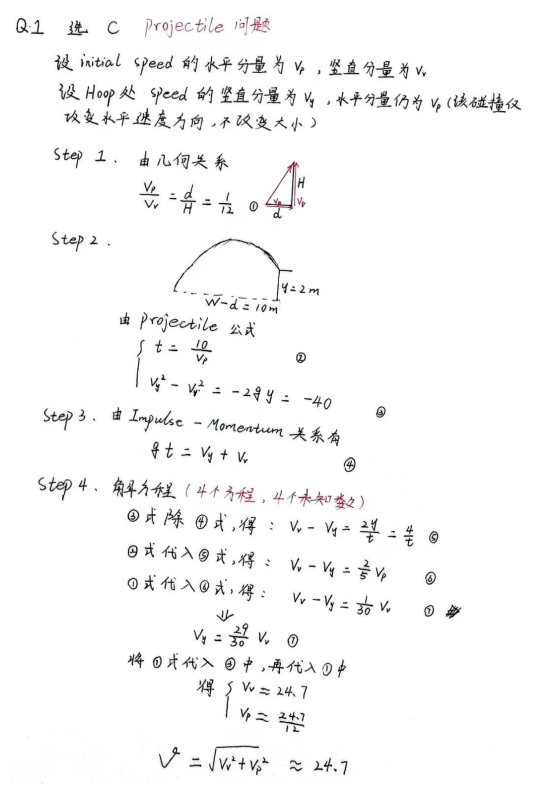 Q.1 选 C projectile 问题
设 initial speed 的水平分量为 Vp，竖直分量为 Vv
设 Hoop 处 speed 的竖直分量为 Vy，水平分量仍为 Vp（该碰撞仅
改变水平速度方向，不改变大小）
Step 1. 由几何关系
Vp/Vv = d/H = 1/12 ①
H
Vp
Vv
d
Step 2.
y=2m
W-d=10m
由 projectile 公式
{ t = 10/Vp ②
Vy² - Vv² = -2gy = -40 ③
Step 3. 由 Impulse - Momentum 关系有
gt = Vy + Vv ④
Step 4. 解方程（4个方程，4个未知数）
③式除④式，得： Vv - Vy = 2y/t = 4/t ⑤
②式代入⑤式，得： Vv - Vy = 2/5 Vp ⑥
①式代入⑥式，得： Vv - Vy = 1/30 Vv ⑦
⇓
Vy = 29/30 Vv ⑦
将⑦式代入③中，再代入①中
得 { Vv ≈ 24.7
Vp ≈ 24.7/12
V = √(Vv²+Vp²) ≈ 24.7